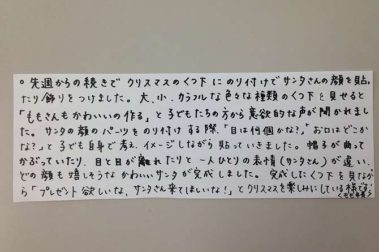 ○先週からの続きで クリスマスのくつ下に のり付けでサンタさんの顔を貼っ
たり飾りをつけました。大、小、カラフルな色々な種類のくつ下を見せると
「ももさんもかわいいの作る」と子どもたちの方から意欲的な声が聞かれまし
た。サンタの顔のパーツをのり付けする際、「目は何個かな?」"お口はどこか
な?」と子ども自身で考え、イメージしながら貼っていきました。帽子が曲って
かぶっていたり、目と目が離れたりと一人ひとりの表情(サンタさん)が違い、
どの顔も嬉しそうなかわいいサンタが完成しました。完成したくつ下を見なが
ら「プレゼント欲しいな、サンタさん来てほしいな!」とクリスマスを楽しみにしている様です。